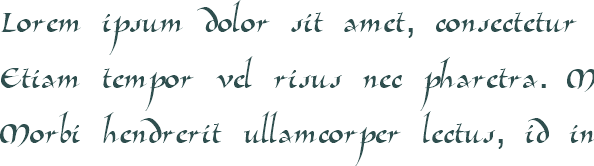 Lorem ipsum dolor sit amet, consectetur
Etiam tempor vel risus nec pharetra. M
Morbi hendrerit ullamcorper lectus, id in